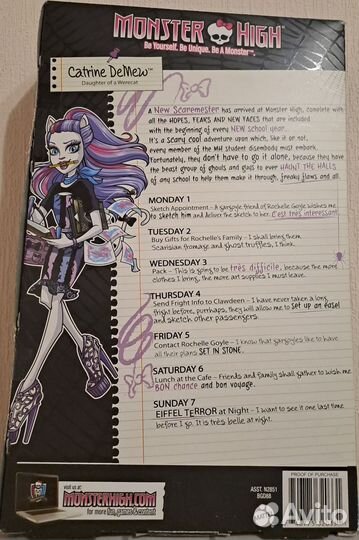 MONSTER HIGH™
Be Yourself. Be Unique. Be A Monster.™
Catrine DeMew™
Daughter of a Werecat
A New Scaremester has arrived at Monster High, complete with
all the HOPES, FEARS AND NEW FACES that are included
with the beginning of every NEW school year.
It's a scary cool adventure upon which, like it or not,
every member of the MH student disembody must embark.
Fortunately, they don't have to go it alone, because they have
the beast group of ghouls and guys to ever HAUNT THE HALLS
of any school to help them make it through, freaky flaws and all.
MONDAY 1
Sketch Appointment – A gargoyle friend of Rochelle Goyle wishes me
to sketch him and deliver the sketch to her. C'est très intéressant!
TUESDAY 2
Buy Gifts for Rochelle's Family – I shall bring them
Scarisian fromage and ghost truffles, I think.
WEDNESDAY 3
Pack – This is going to be très difficile, because the more
clothes I bring, the more art supplies I must leave.
THURSDAY 4
Send Fright Info to Clawdeen – I have never taken a long
fright before, purrhaps, they will allow me to set up an easel
and sketch other passengers.
FRIDAY 5
Contact Rochelle Goyle – I know that gargoyles like to have
all their plans SET IN STONE.
SATURDAY 6
Lunch at the Cafe – Friends and family shall gather to wish me
BON chance and bon voyage.
SUNDAY 7
EIFFEL TERROR at Night – I want to see it one last time
before I go. It is très belle at night.
visit us at
MONSTERHIGH.COM
for more fun, games & content!
ASST. N2851
BGD88
PROOF OF PURCHASE
Avito